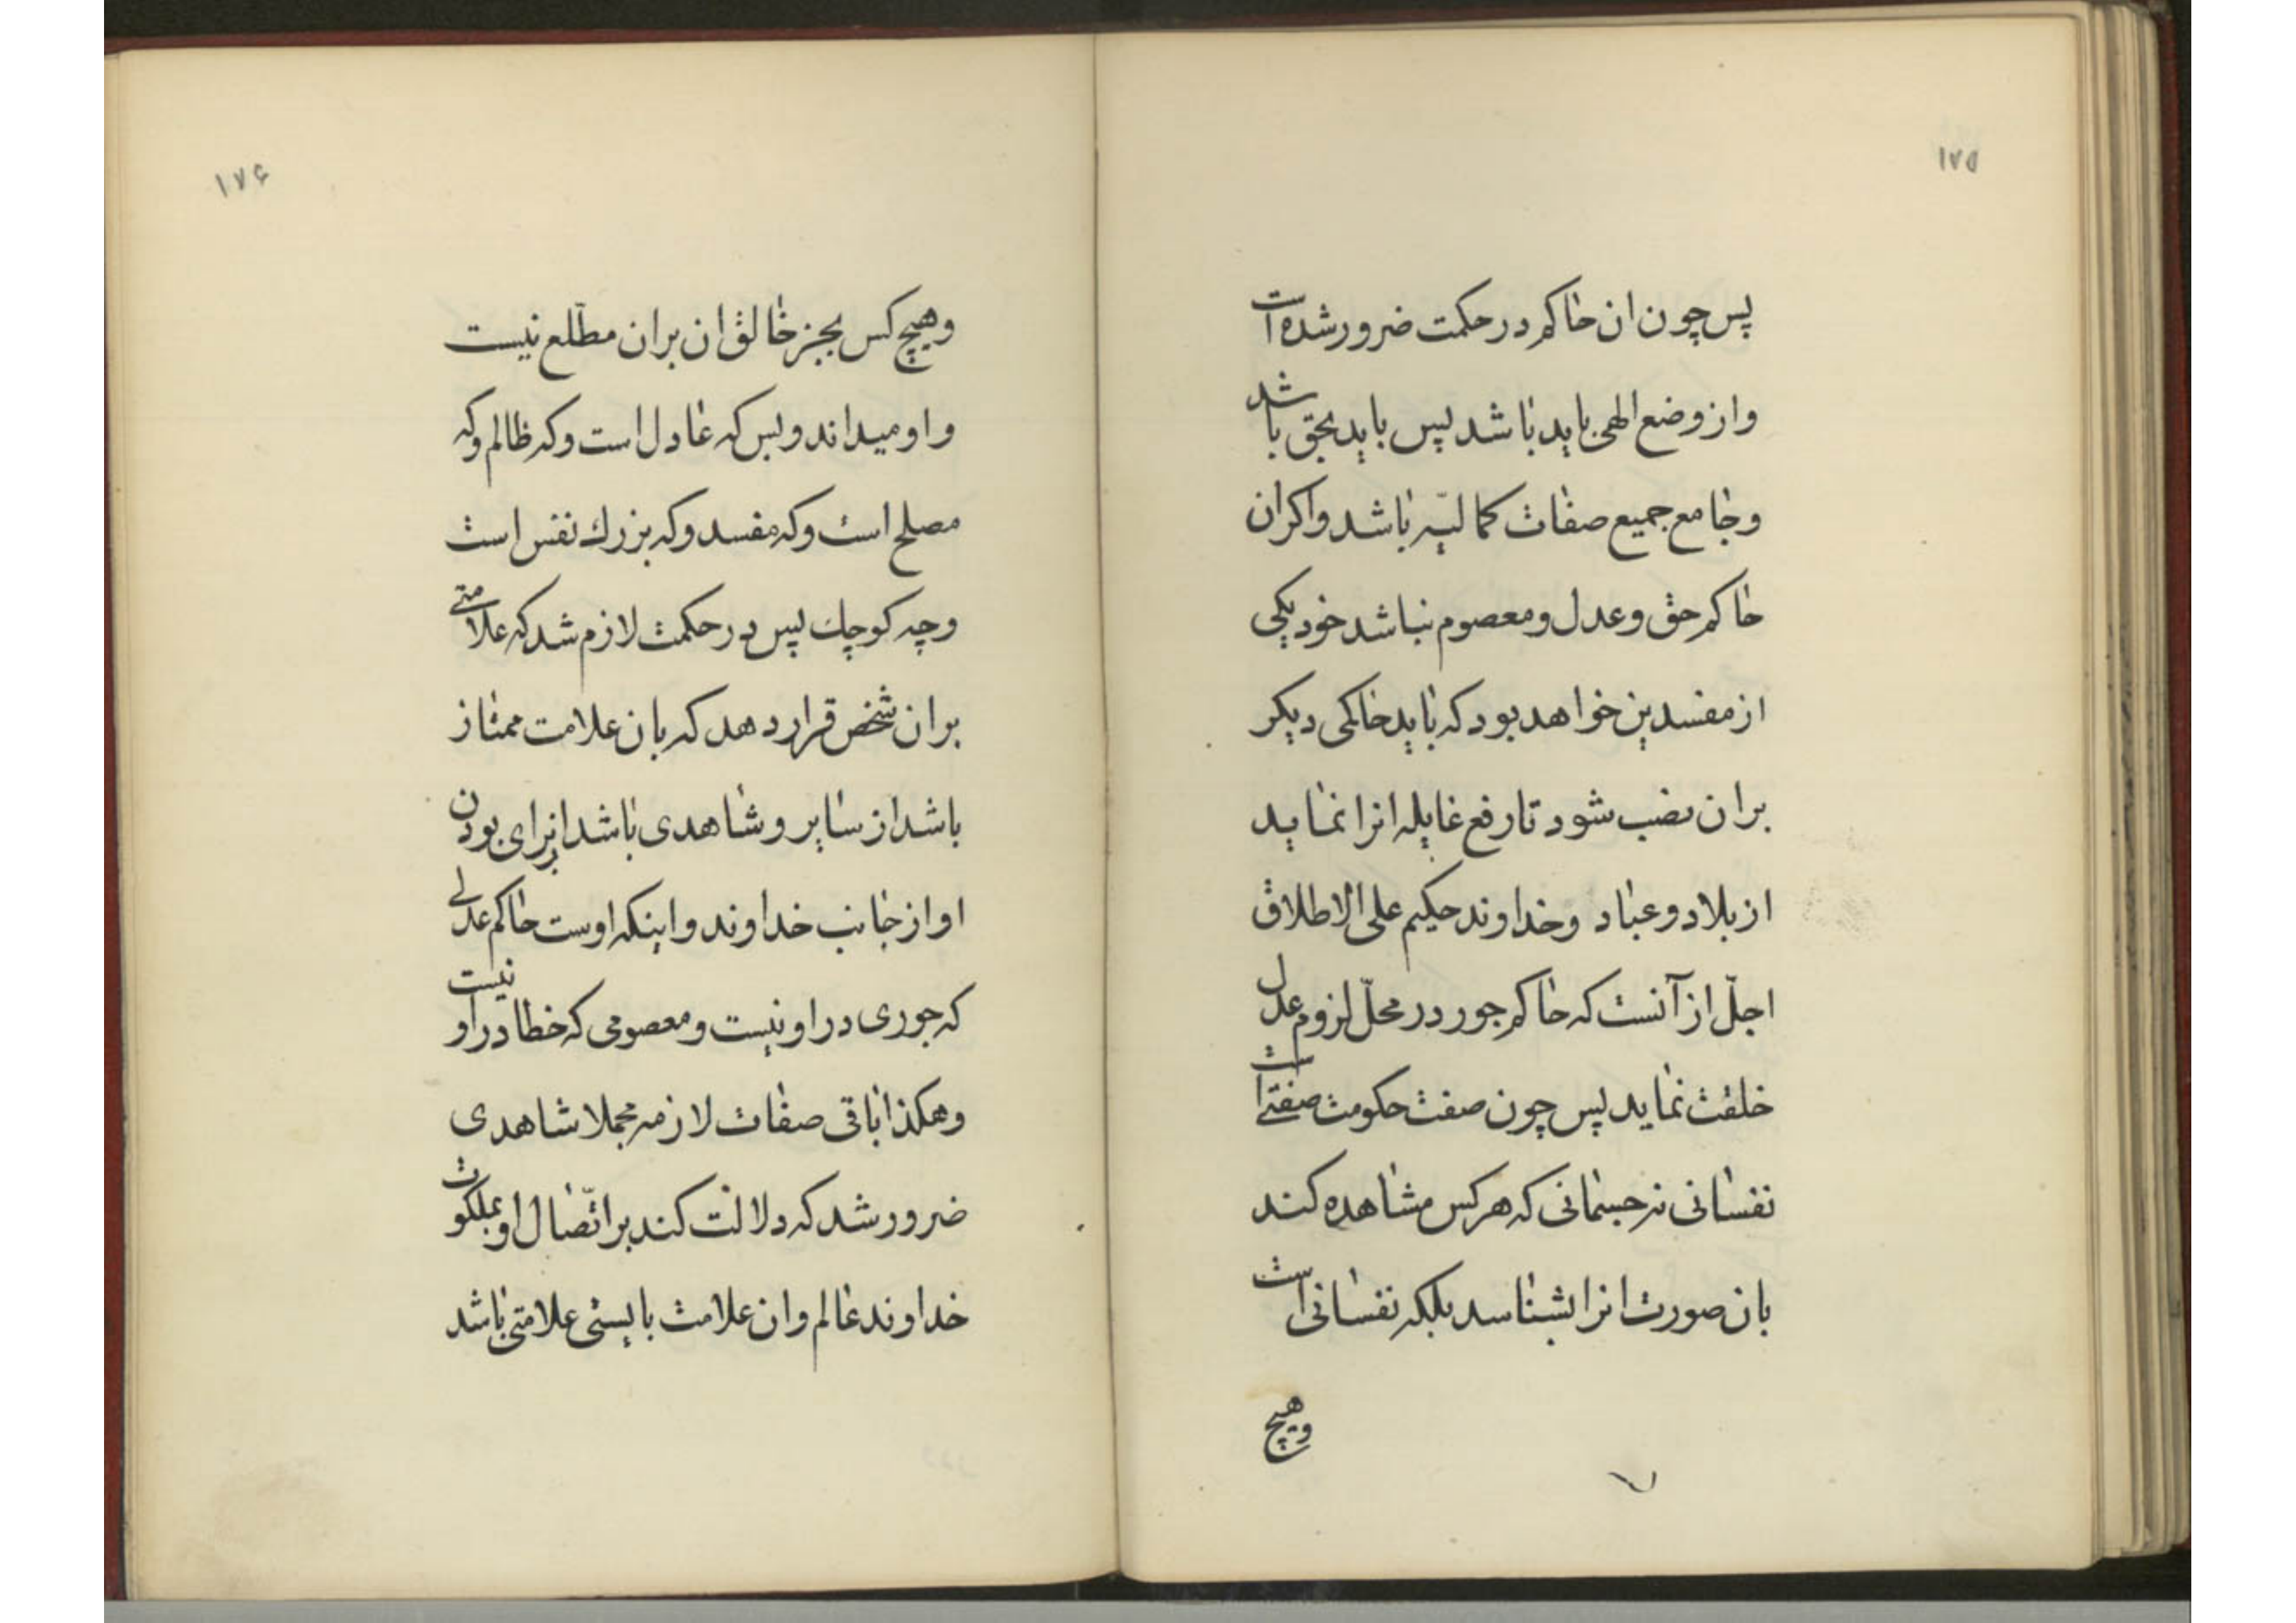 ۱۷۵
پس چون ان حاکم در حکمت ضرور شده است
و از وضع الهی باید باشد پس باید بحق باشد
و جامع جمیع صفات کمالیّه باشد و اکر ان
حاکم حق و عدل و معصوم نباشد خود یکی
از مفسدین خواهد بود که باید حاکمی دیکر
بر ان نصب شود تا رفع غایله انرا نماید
از بلاد و عباد و خداوند حکیم علی الاطلاق
اجلّ از آنست که حاکم جور در محلّ لزوم عدل
خلقت نماید پس چون صفت حکومت صفتی است
نفسانی نه جسمانی که هر کس مشاهده کند
بان صورت انرا بشناسد بلکه نفسانی است
و هیچ
۱۷۶
و هیچ کس بجز خالق ان بر ان مطّلع نیست
و او میداند و بس که عادل است و که ظالم و که
مصلح است و که مفسد و که بزرك نفس است
و چه کوچك پس در حکمت لازم شد که علامتی
بر ان شخص قرار دهد که بان علامت ممتاز
باشد از سایر و شاهدی باشد از برای بودن
او از جانب خداوند و اینکه اوست حاکم عدلی
که جوری در او نیست و معصومی که خطا در او نیست
و هکذا باقی صفات لازمه مجملا شاهدی
ضرور شد که دلالت کند بر اتّصال او بملکوت
خداوند عالم و ان علامت بایستی علامتی باشد